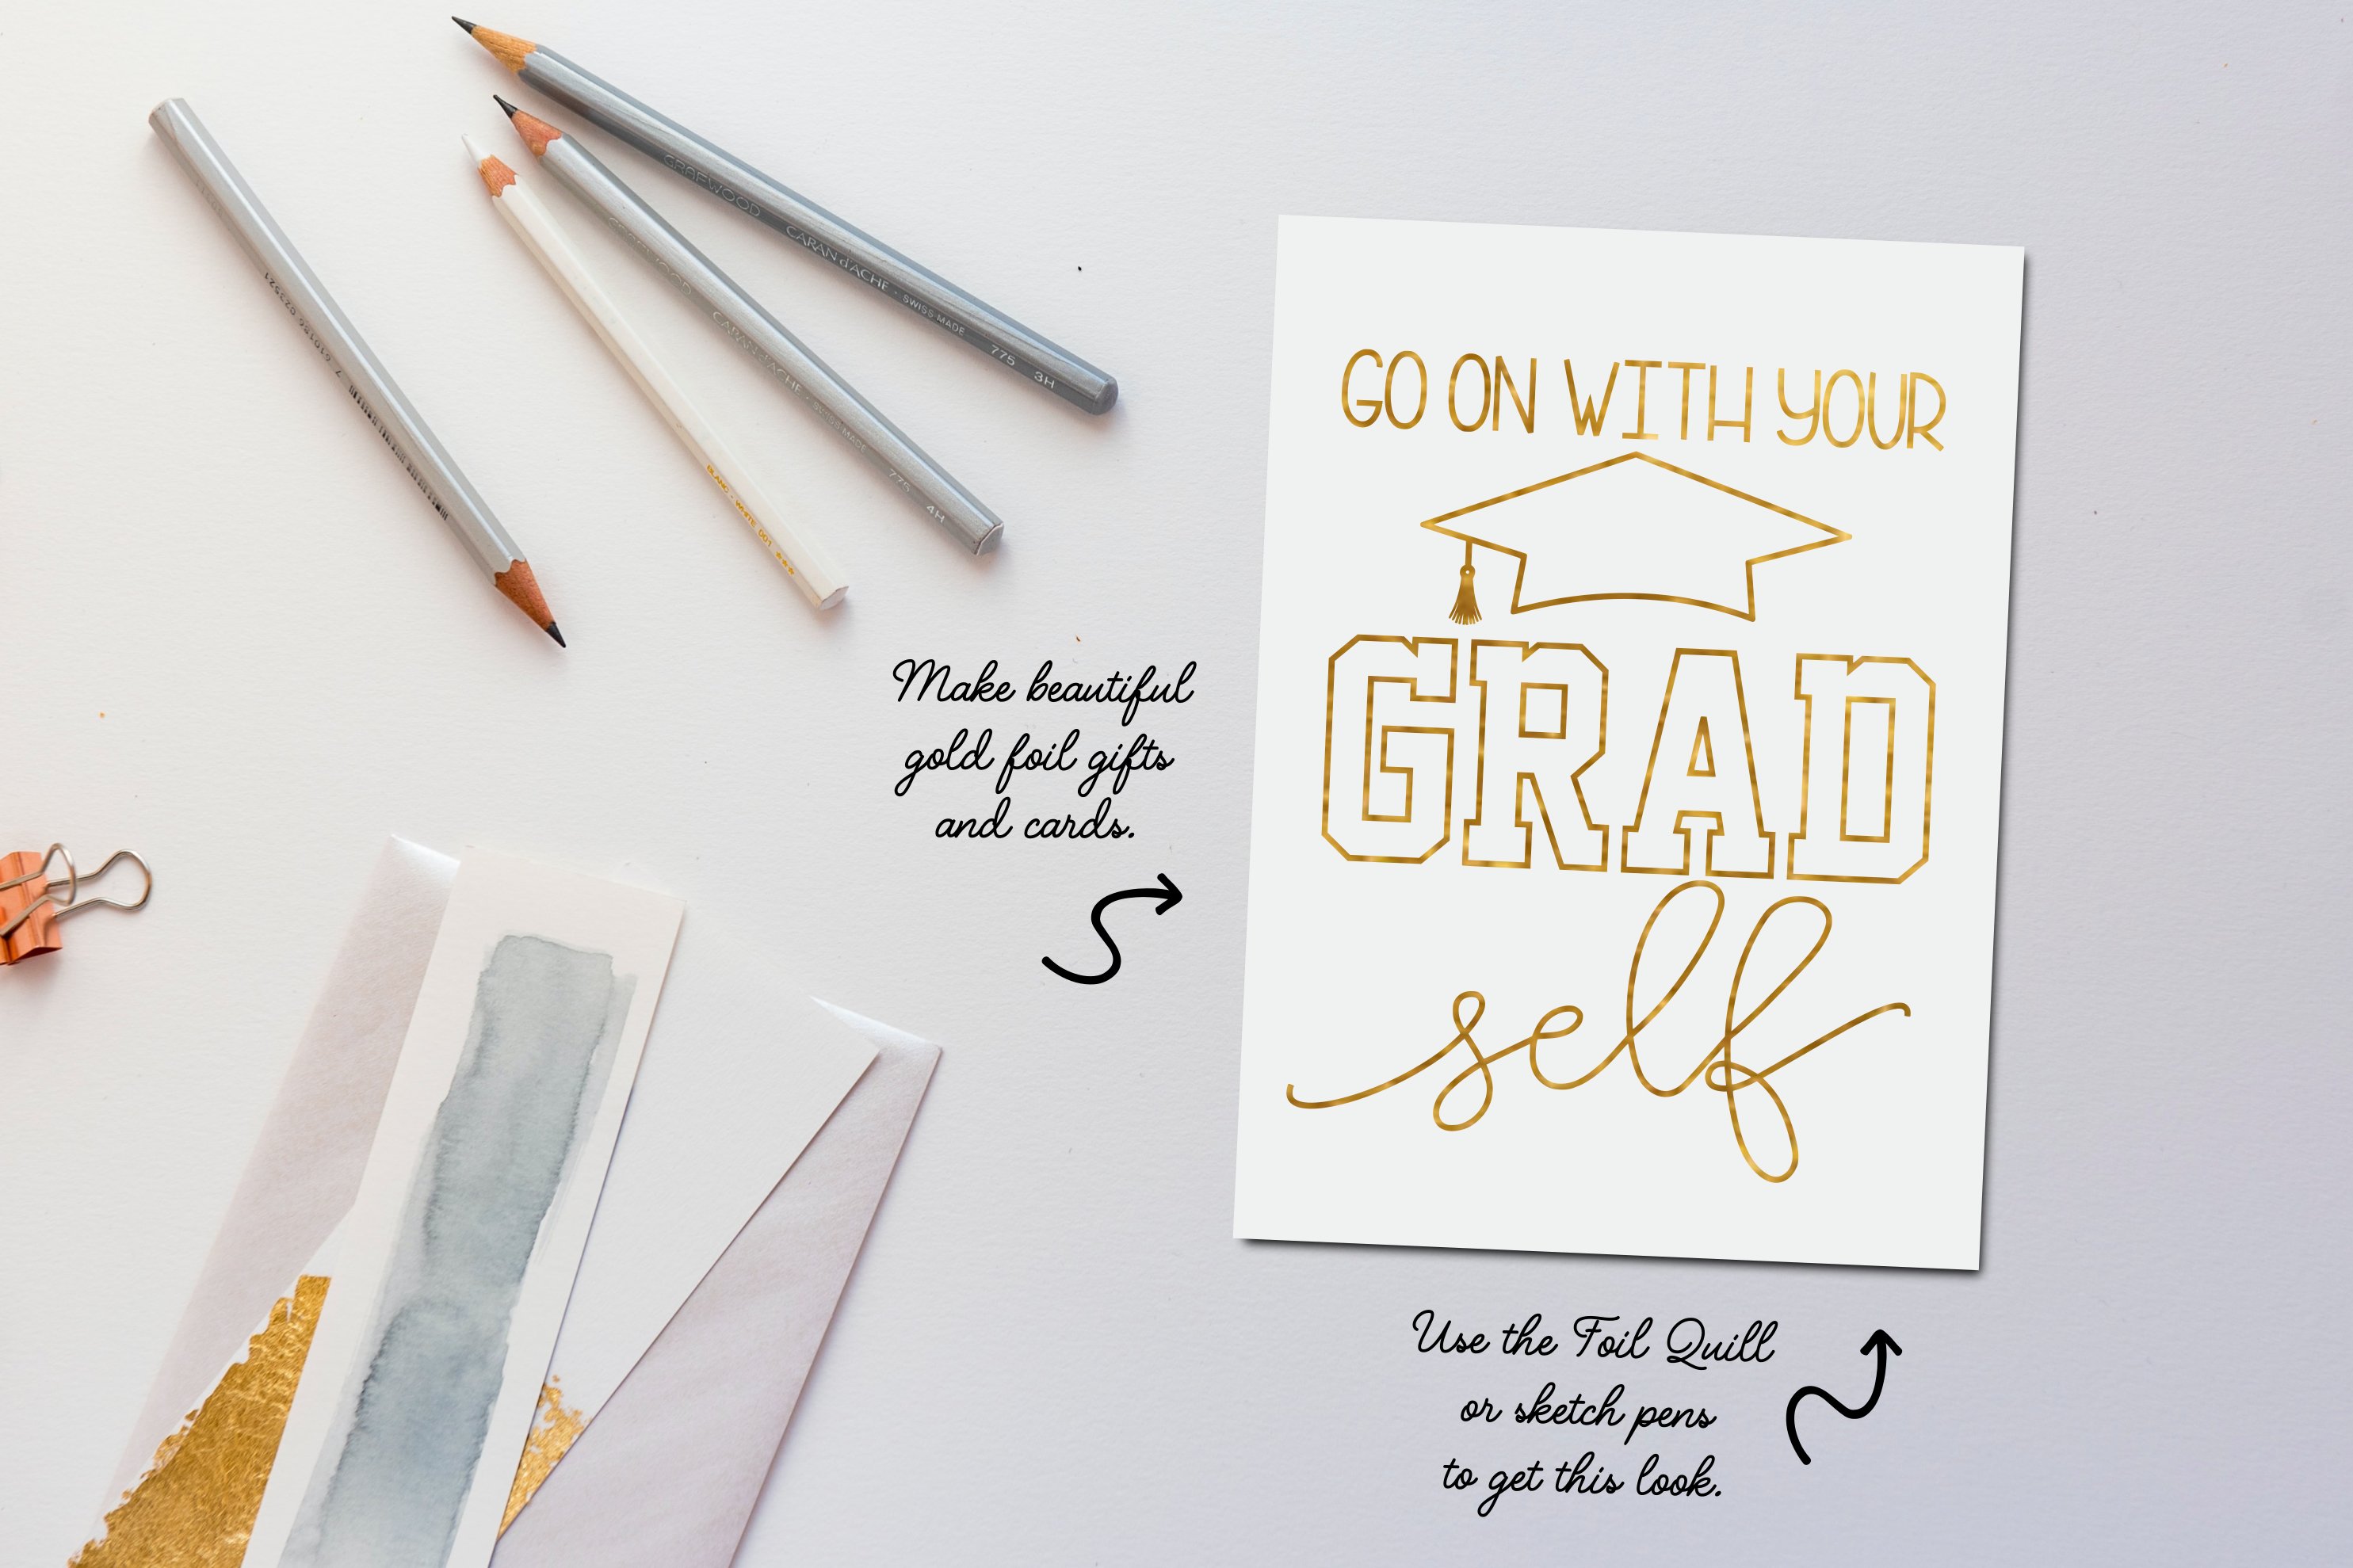 GRAFWOOD CARAN d'ACHE · SWISS MADE 775 3H
GRAFWOOD CARAN d'ACHE · SWISS MADE 775 4H
BLANC · WHITE 001 ***
GO ON WITH YOUR
GRAD
self
Make beautiful
gold foil gifts
and cards.
Use the Foil Quill
or sketch pens
to get this look.